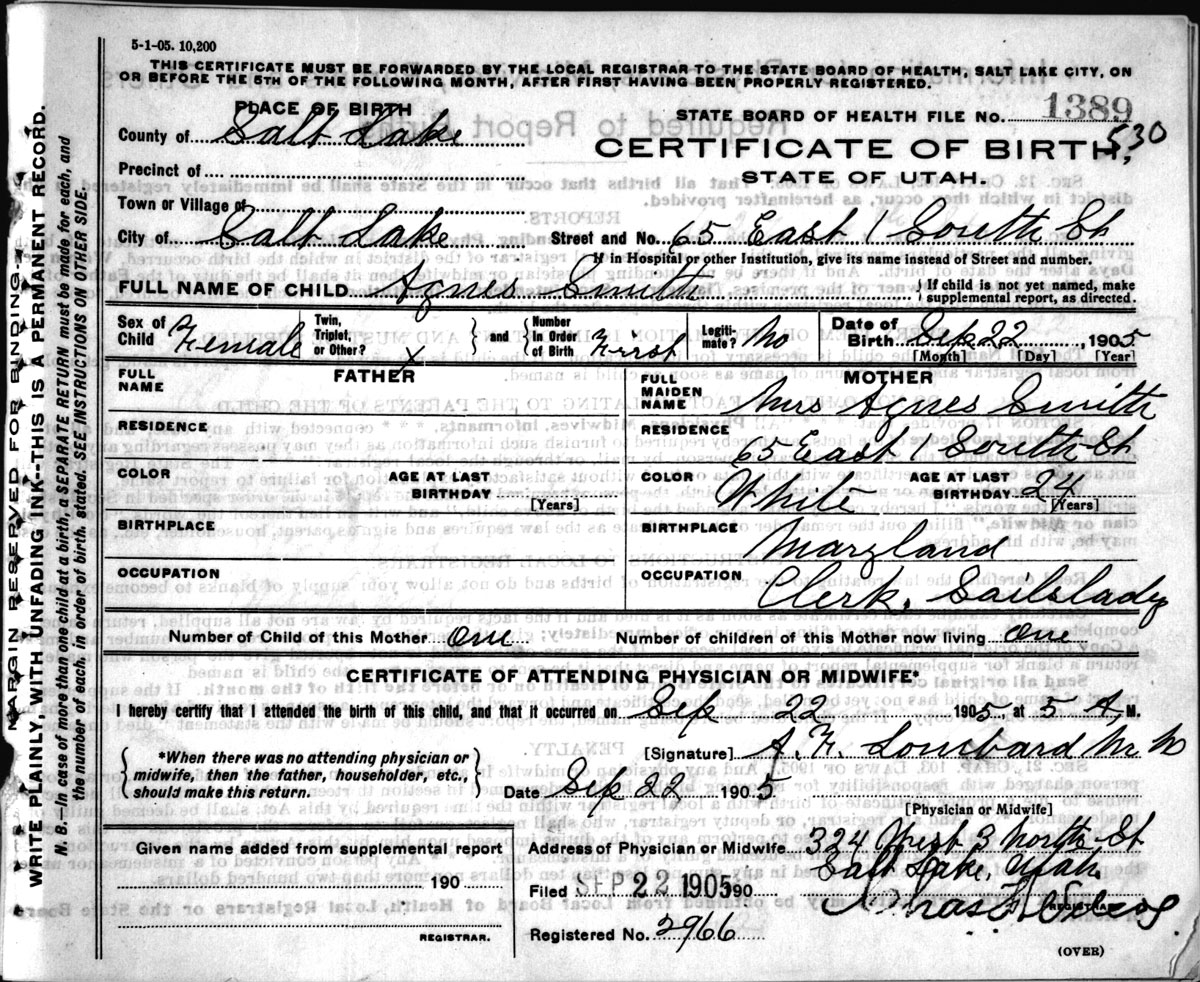 5-1-05. 10,200
THIS CERTIFICATE MUST BE FORWARDED BY THE LOCAL REGISTRAR TO THE STATE BOARD OF HEALTH, SALT LAKE CITY, ON
OR BEFORE THE 5TH OF THE FOLLOWING MONTH, AFTER FIRST HAVING BEEN PROPERLY REGISTERED.
PLACE OF BIRTH
STATE BOARD OF HEALTH FILE No. 1389
530
County of Salt Lake
CERTIFICATE OF BIRTH,
Precinct of
STATE OF UTAH.
Town or Village of
City of Salt Lake Street and No. 65 East 1 South St
If in Hospital or other Institution, give its name instead of Street and number.
FULL NAME OF CHILD Agnes Smith
If child is not yet named, make
supplemental report, as directed.
Sex of Child Female
Twin, Triplet, or Other? x
and
Number In Order of Birth First
Legiti-mate? No
Date of Birth Sep 22, 1905
[Month] [Day] [Year]
FATHER
FULL NAME
RESIDENCE
COLOR
AGE AT LAST BIRTHDAY
[Years]
BIRTHPLACE
OCCUPATION
MOTHER
FULL MAIDEN NAME Mrs Agnes Smith
RESIDENCE 65 East 1 South St
COLOR White
AGE AT LAST BIRTHDAY 24
[Years]
BIRTHPLACE Maryland
OCCUPATION Clerk, Sailslady
Number of Child of this Mother One Number of children of this Mother now living One
CERTIFICATE OF ATTENDING PHYSICIAN OR MIDWIFE*
I hereby certify that I attended the birth of this child, and that it occurred on Sep 22 1905, at 5 A. M.
*When there was no attending physician or
midwife, then the father, householder, etc.,
should make this return.
[Signature] A. F. Lombard M D
Date Sep 22 1905
[Physician or Midwife]
Given name added from supplemental report
190
REGISTRAR.
Address of Physician or Midwife 324 West 3 North St
Salt Lake, Utah
Filed SEP 22 1905 190
REGISTRAR
Registered No. 2966
(OVER)
MARGIN RESERVED FOR BINDING.
WRITE PLAINLY, WITH UNFADING INK--THIS IS A PERMANENT RECORD.
N. B.--In case of more than one child at a birth, a SEPARATE RETURN must be made for each, and
the number of each, in order of birth, stated. SEE INSTRUCTIONS ON OTHER SIDE.